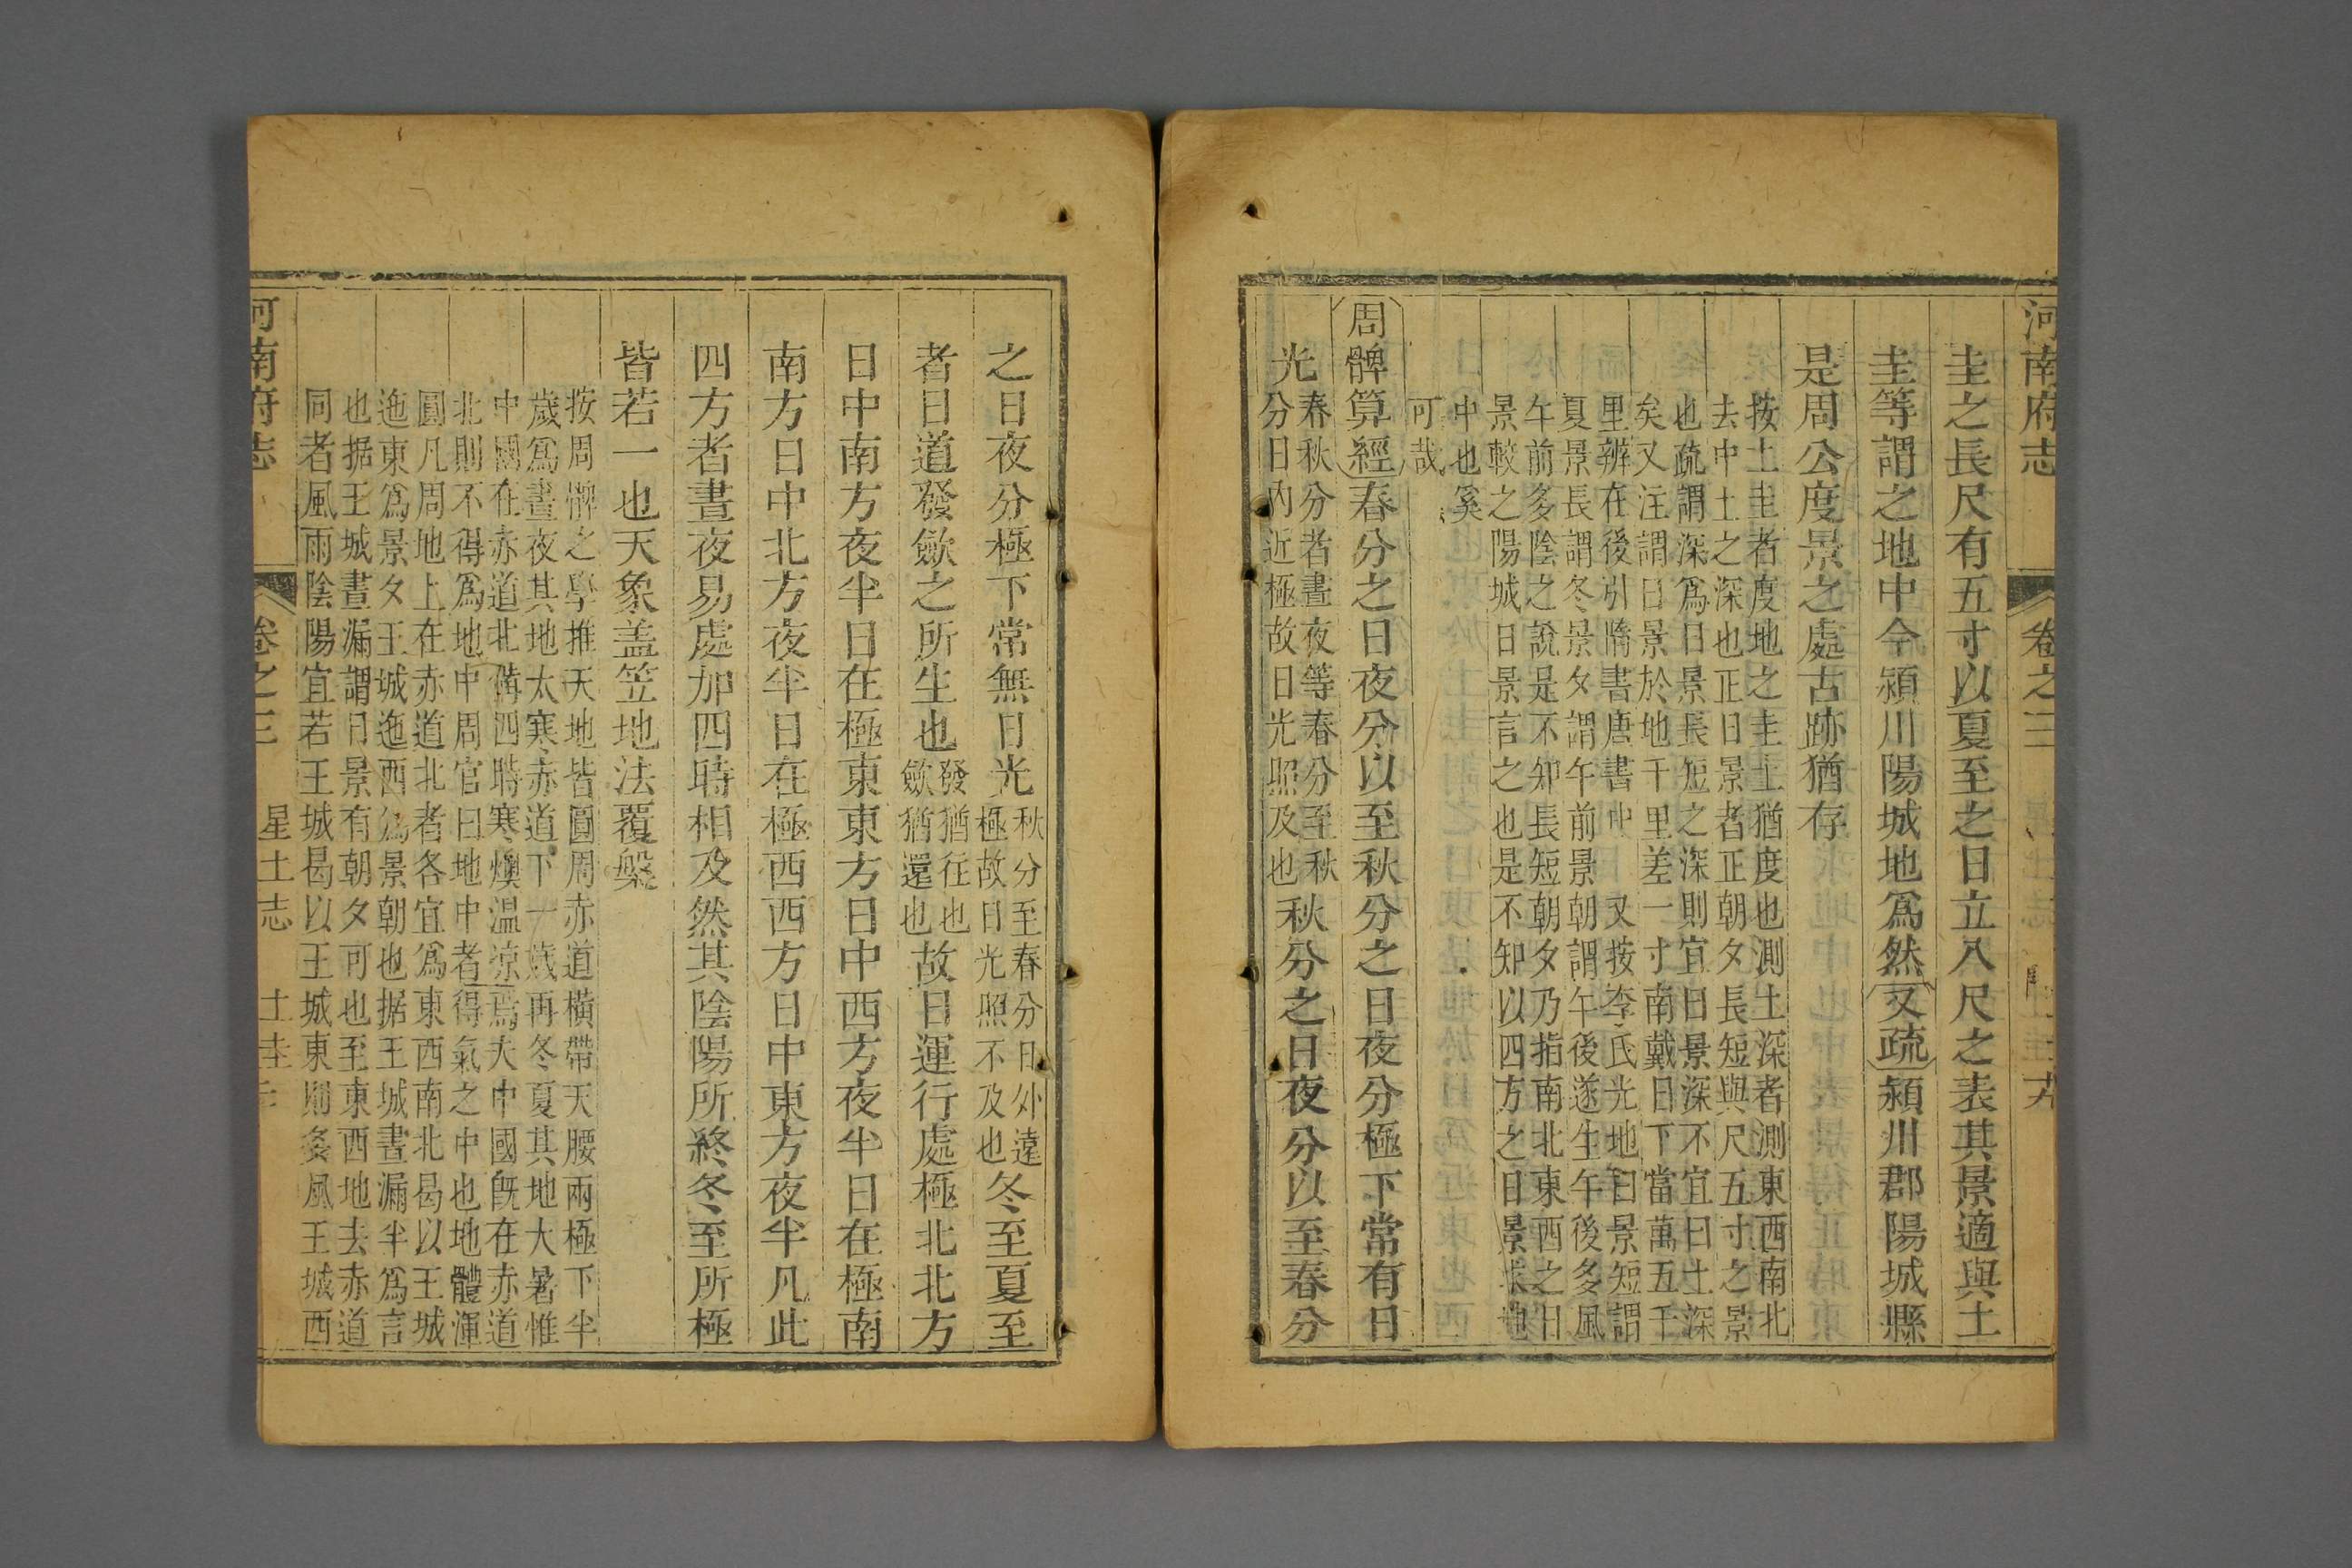 河南府志
卷之三
圭之長尺有五寸以夏至之日立八尺之表其景適與土
圭等謂之地中今潁川陽城地爲然又疏潁川郡陽城縣
是周公度景之處古跡猶存
按土圭者度地之圭土猶度也測土深者測東西南北
去中土之深也正日景者正朝夕長短與尺五寸之景
也疏謂深爲日景長短之深則宜曰景深不宜曰土深
矣又注謂日景於地千里差一寸南戴日下當萬五千
里辨在後引隋書唐書中又按李氏光地曰景短謂
夏景長謂冬景夕謂午前景朝謂午後遂生午後多風
午前多陰之說是不知長短朝夕乃指南北東西之日
景較之陽城日景言之也是不知以四方之日景求地
中也奚
可哉
周髀算經春分之日夜分以至秋分之日夜分極下常有日
光春秋分者晝夜等春分至秋
分日內近極故日光照及也秋分之日夜分以至春分
之日夜分極下常無日光秋分至春分日外遠
極故日光照不及也冬至夏至
者日道發歛之所生也發猶往也
歛猶還也故日運行處極北北方
日中南方夜半日在極東東方日中西方夜半日在極南
南方日中北方夜半日在極西西方日中東方夜半凡此
四方者晝夜易處加四時相及然其陰陽所終冬至所極
皆若一也天象盖笠地法覆槃
按周髀之學推天地皆圓周赤道橫帶天腰兩極下半
歲爲晝夜其地太寒赤道下一歲再冬夏其地大暑惟
中國在赤道北備四時寒燠温凉焉夫中國旣在赤道
北則不得爲地中周官曰地中者得氣之中也地體渾
圓凡周地上在赤道北者各宜爲東西南北曷以王城
迤東爲景夕王城迤西爲景朝也据王城晝漏半爲言
也据王城晝漏謂日景有朝夕可也至東西地去赤道
同者風雨陰陽宜若王城曷以王城東則多風王城西
河南府志
卷之三
星土志
土圭